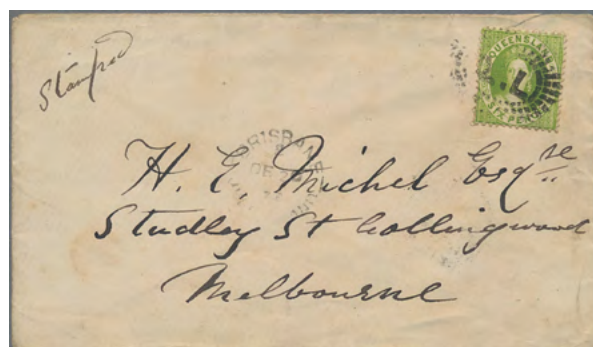 Stamped
QUEENSLAND
SIX PENCE
BRISBANE
H. E. Michel Esqre
Studley St Collingwood
Melbourne